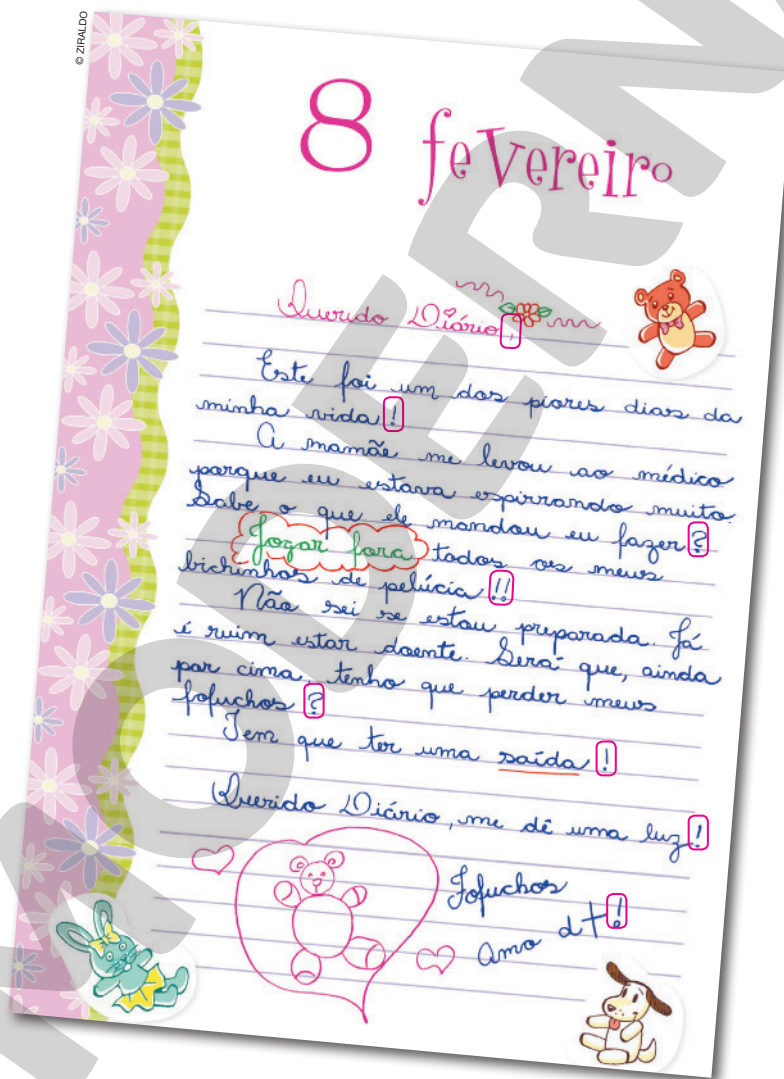 © ZIRALDO
8 feVereiro
Querido Diário,
Este foi um dos piores dias da
minha vida!
A mamãe me levou ao médico
porque eu estava espirrando muito.
Sabe o que ele mandou eu fazer?
Jogar fora todos os meus
bichinhos de pelúcia!!
Não sei se estou preparada. Já
é ruim estar doente. Será que, ainda
por cima, tenho que perder meus
fofuchos?
Tem que ter uma saída!
Querido Diário, me dê uma luz!
Fofuchos
amo d+!
MODERNA